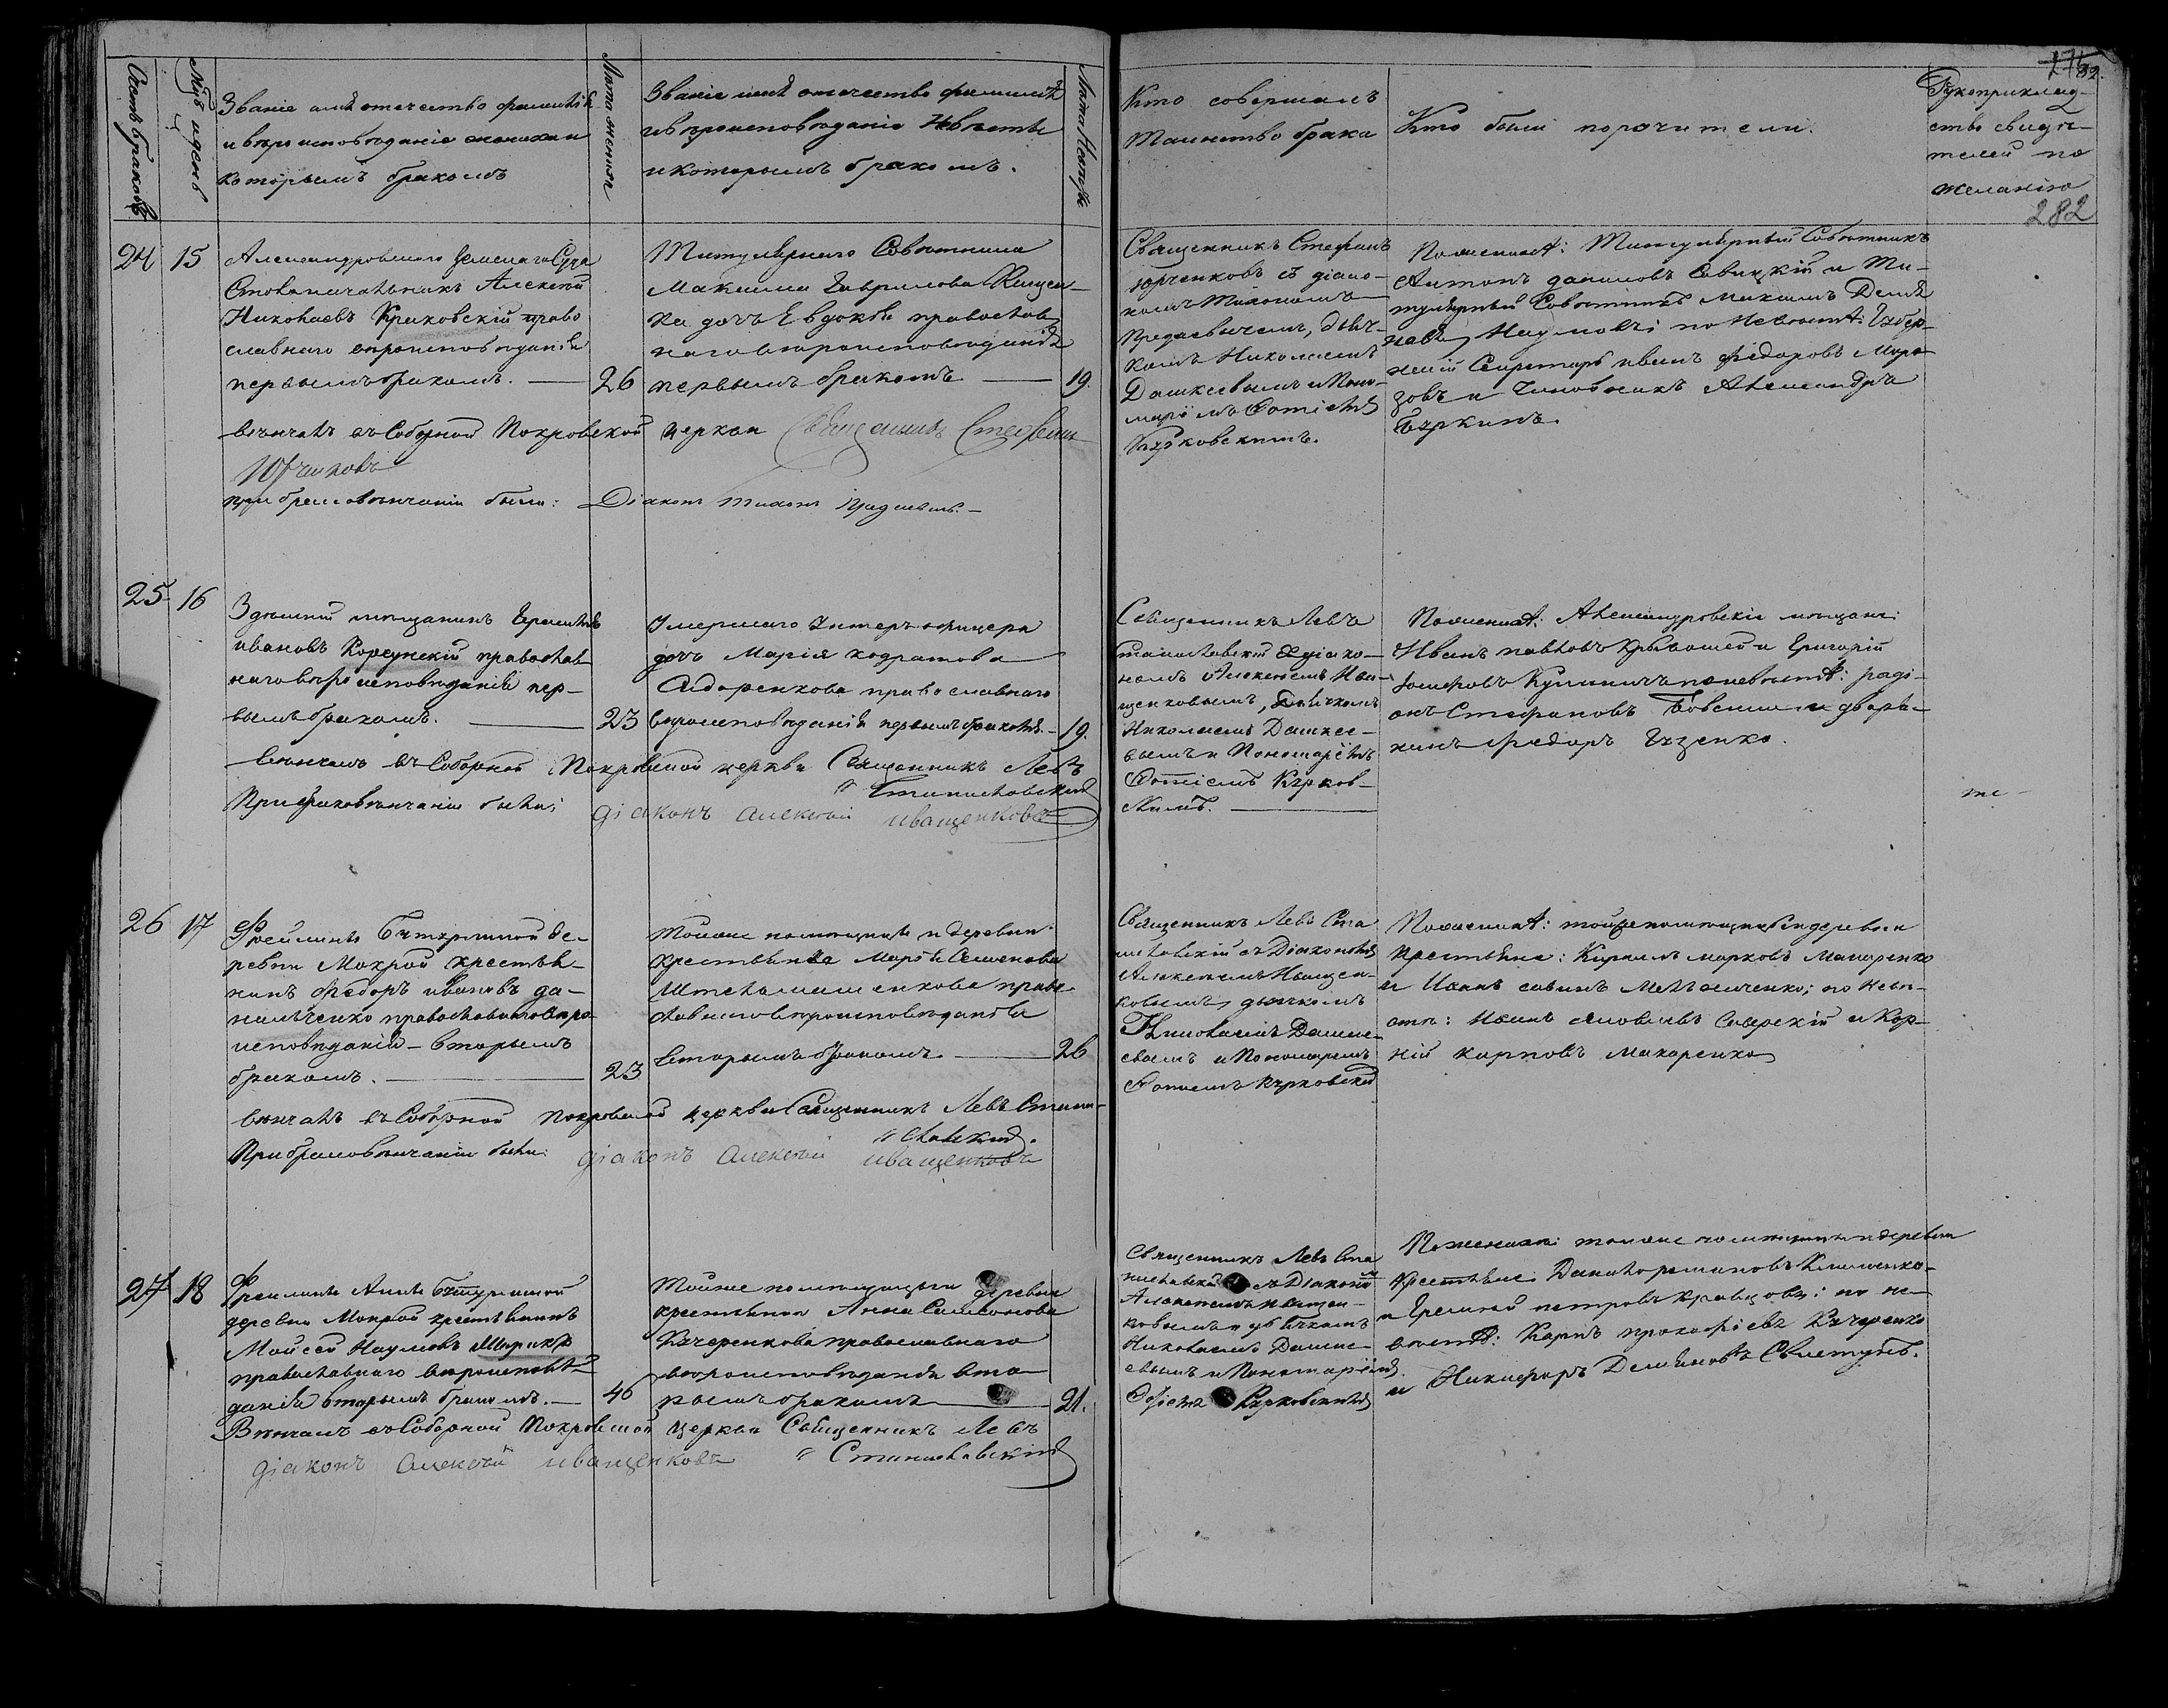 282
Счетъ браковъ
Мцъ и день
Званіе имя отечество фамилія
и вѣроисповѣданіе жениха и
которымъ бракомъ
Лѣта жениха
Званіе имя отечество фамилія
и вѣроисповѣданіе Невѣсты
и которымъ бракомъ.
Лѣта Невѣсты
Кто совершалъ
Таинство брака
Кто были поручители.
Рукоприклад-
ство свидѣ-
телей по
желанію
24 15
Александровскаго Земскаго Суда
Столоначальникъ Алексѣй
Николаевъ Краковскій право
славнаго вѣроисповѣданія
первымъ бракомъ. — 26
Титулярнаго Совѣтника
Максима Гаврилова
дочь Евдокія православ
наго вѣроисповѣданія
первымъ бракомъ — 19.
Священникъ Стефанъ
Юрченковъ съ діако-
номъ Тихономъ
дьяч-
комъ Николаемъ
Дашкеевымъ и Поно-
маремъ Фотіемъ
Курковскимъ.
По женихѣ: Титулярный Совѣтникъ
Антонъ Даниловъ Савицкій и Ти-
тулярный Совѣтникъ Максимъ Демья
новъ Наумовъ; по Невѣстѣ: Губер-
нскій Секретарь Иванъ Федоровъ Моро
зовъ и Чиновникъ Александръ
Буркинъ.
вѣнчалъ въ Соборной Покровской церкви Священникъ Стефанъ
Юрченковъ
при браковѣнчаніи были: Діаконъ Тихонъ
25 16
Здѣшній мѣщанинъ
Ивановъ Корсунскій православ
наго вѣроисповѣданія пер-
вымъ бракомъ. — 23
Умершаго Унтеръ-офицера
дочь Марія Кодратова
Сидоренкова православнаго
вѣроисповѣданія первымъ бракомъ. — 19.
Священникъ Левъ
Станиславскій съ діако-
номъ Алексѣемъ Ива-
щенковымъ, Дьячкомъ
Николаемъ Дашкее-
вымъ и Пономаремъ
Фотіемъ Курков-
скимъ.
По женихѣ: Александровскіе мѣщане:
Иванъ Павловъ Кривошей и Григорій
Кулиничъ по невѣстѣ: Раді-
онъ Стефановъ и дворя-
нинъ Федоръ Гузенко.
вѣнчалъ въ Соборной Покровской церкви Священникъ Левъ
Станиславскій
При браковѣнчаніи были: діаконъ Алексѣй Иващенковъ
26 17
Фрейлины Бутурлиной де-
ревни Мокрой крестья-
нинъ Федоръ Ивановъ Да-
нильченко православнаго вѣро-
исповѣданія вторымъ
бракомъ. — 23
Тойже помѣщицы и деревни
крестьянка Марѳа Семенова
православнаго вѣроисповѣданія
вторымъ бракомъ. — 26
Священникъ Левъ Ста
ниславскій съ Діакономъ
Алексѣемъ Иващен-
ковымъ, дьячкомъ
Николаемъ Дашкее-
вымъ и Пономаремъ
Фотіемъ Курковскимъ
По женихѣ: тойже помѣщицы и деревни
крестьяне: Кириллъ Марковъ Макаренко
и Иванъ Савинъ Мельниченко; по невѣ-
стѣ: Иванъ Яковлевъ Сиверскій и Кор-
ній Карповъ Макаренко
вѣнчалъ въ Соборной Покровской церкви Священникъ Левъ Стани-
славскій.
При браковѣнчаніи были: діаконъ Алексѣй Иващенковъ
27 18
Фрейлины Анны Бутурлиной
деревни Мокрой крестьянинъ
Моисей Наумовъ
православнаго вѣроисповѣ-
данія вторымъ бракомъ. — 46
Тойже помѣщицы деревни
крестьянка Анна Симонова
Кучеренкова православнаго
вѣроисповѣданія вто-
рымъ бракомъ — 21.
Священникъ Левъ Ста
ниславскій съ Діакономъ
Алексѣемъ Иващен-
ковымъ дьячкомъ
Николаемъ Дашкее-
вымъ и Пономаремъ
Фотіемъ Курковскимъ
По женихѣ: тойже помѣщицы и деревни
крестьяне: Данило Романовъ Клименко
и Еремѣй Петровъ Кравцовъ; по не-
вѣстѣ: Карпъ Прокофіевъ Кучеренко
и Никифоръ Демьяновъ Свистунъ.
Вѣнчалъ въ Соборной Покровской церкви Священникъ Левъ
Станиславскій
діаконъ Алексѣй Иващенковъ